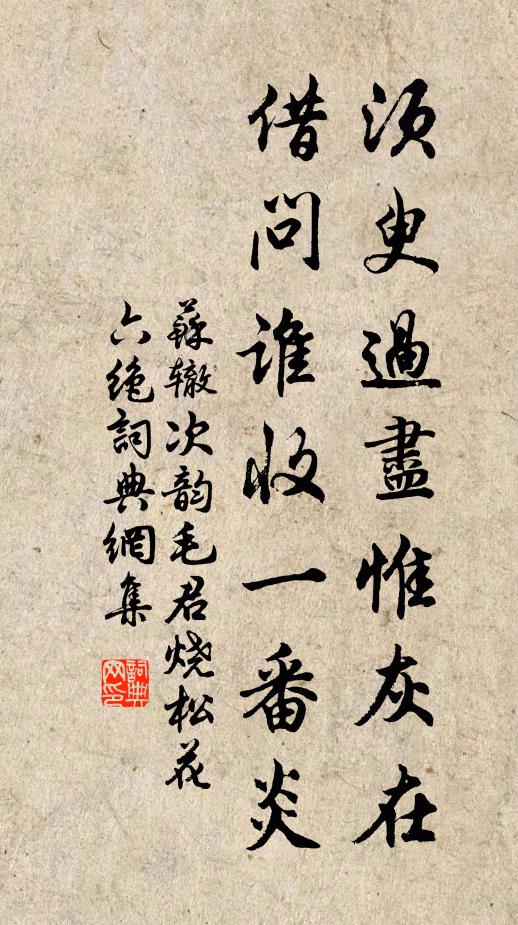 須臾過盡惟灰在
借問誰收一番炎
蘇辙次韵毛君烧松花
六绝詞典網集
詞典
网印